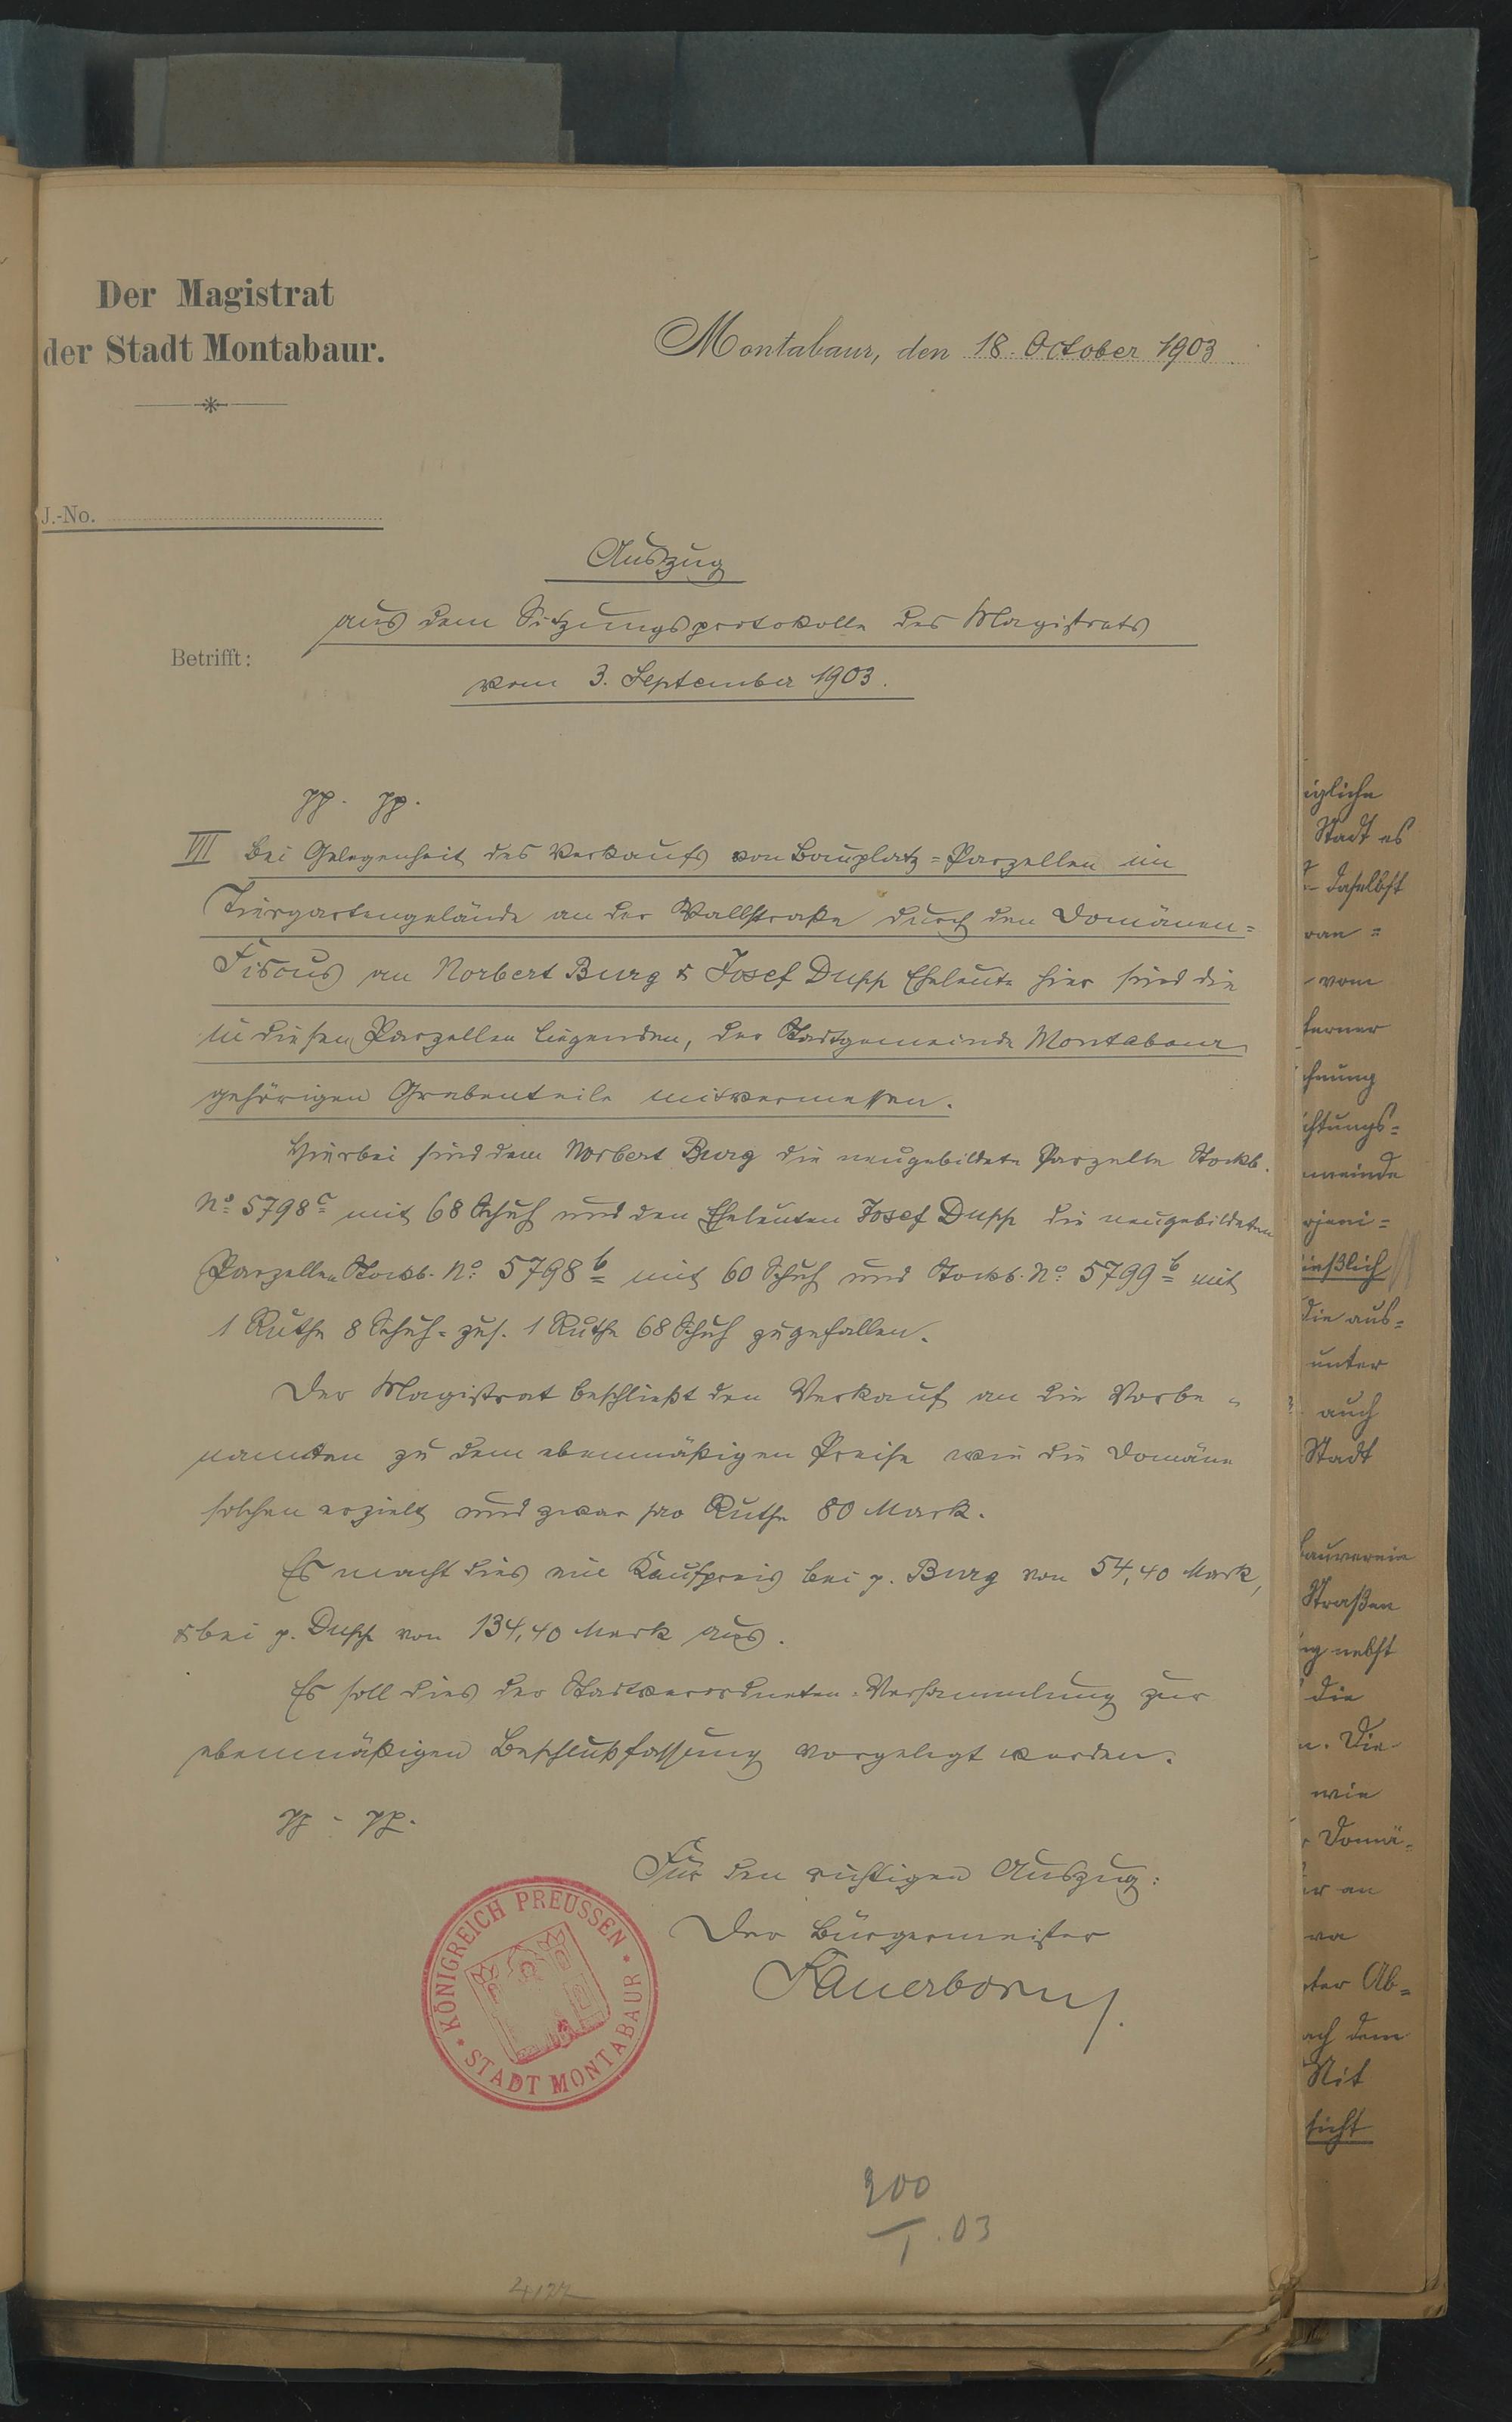 Der Magistrat
der Stadt Montabaur.
Montabaur, den 18. October 1903
J.-No.
Auszug
aus dem Sitzungsprotokolle des Magistrats
Betrifft:
vom 3. September 1903.
pp. pp.
VII Bei Gelegenheit des Verkaufs von Bauplatz=Parzellen im
Tiergartengelände an der Wallstraße durch den Domänen=
Fiscus an Norbert Burg & Josef Dupp Eheleute hier sind die
in diesen Parzellen liegenden, der Stadtgemeinde Montabaur
gehörigen Grabenteile mitvermessen.
Hierbei sind dem Norbert Burg die neugebildete Parzelle Stockb.
No 5798c mit 68 Schuh und den Eheleuten Josef Dupp die neugebildeten
Parzellen Stockb. No 5798b mit 60 Schuh und Stockb. No 5799b mit
1 Ruthe 8 Schuh = zus. 1 Ruthe 68 Schuh zugefallen.
Der Magistrat beschließt den Verkauf an die Vorbe=
nannten zu dem ebenmäßigen Preise wie die Domäne
solchen erzielt und zwar pro Ruthe 80 Mark.
Es macht dies einen Kaufpreis bei p. Burg von 54,40 Mark,
& bei p. Dupp von 134,40 Mark aus.
Es soll dies der Stadtverordneten-Versammlung zur
ebenmäßigen Beschlußfassung vorgelegt werden.
pp - pp.
Für den richtigen Auszug:
Der Bürgermeister
Sauerborn
KÖNIGREICH PREUSSEN
STADT MONTABAUR
900
I. 03
4177
igliche
Stadt es
daselbst
ran =
vom
ferner
ehnung
ichtungs=
meinde
rjeni=
ießlich
die aus=
unter
auch
Stadt
bauverein
Straßen
ng nebst
die
n. Die
wie
Domä=
er an
ter Ab=
ach dem
Mit
sicht